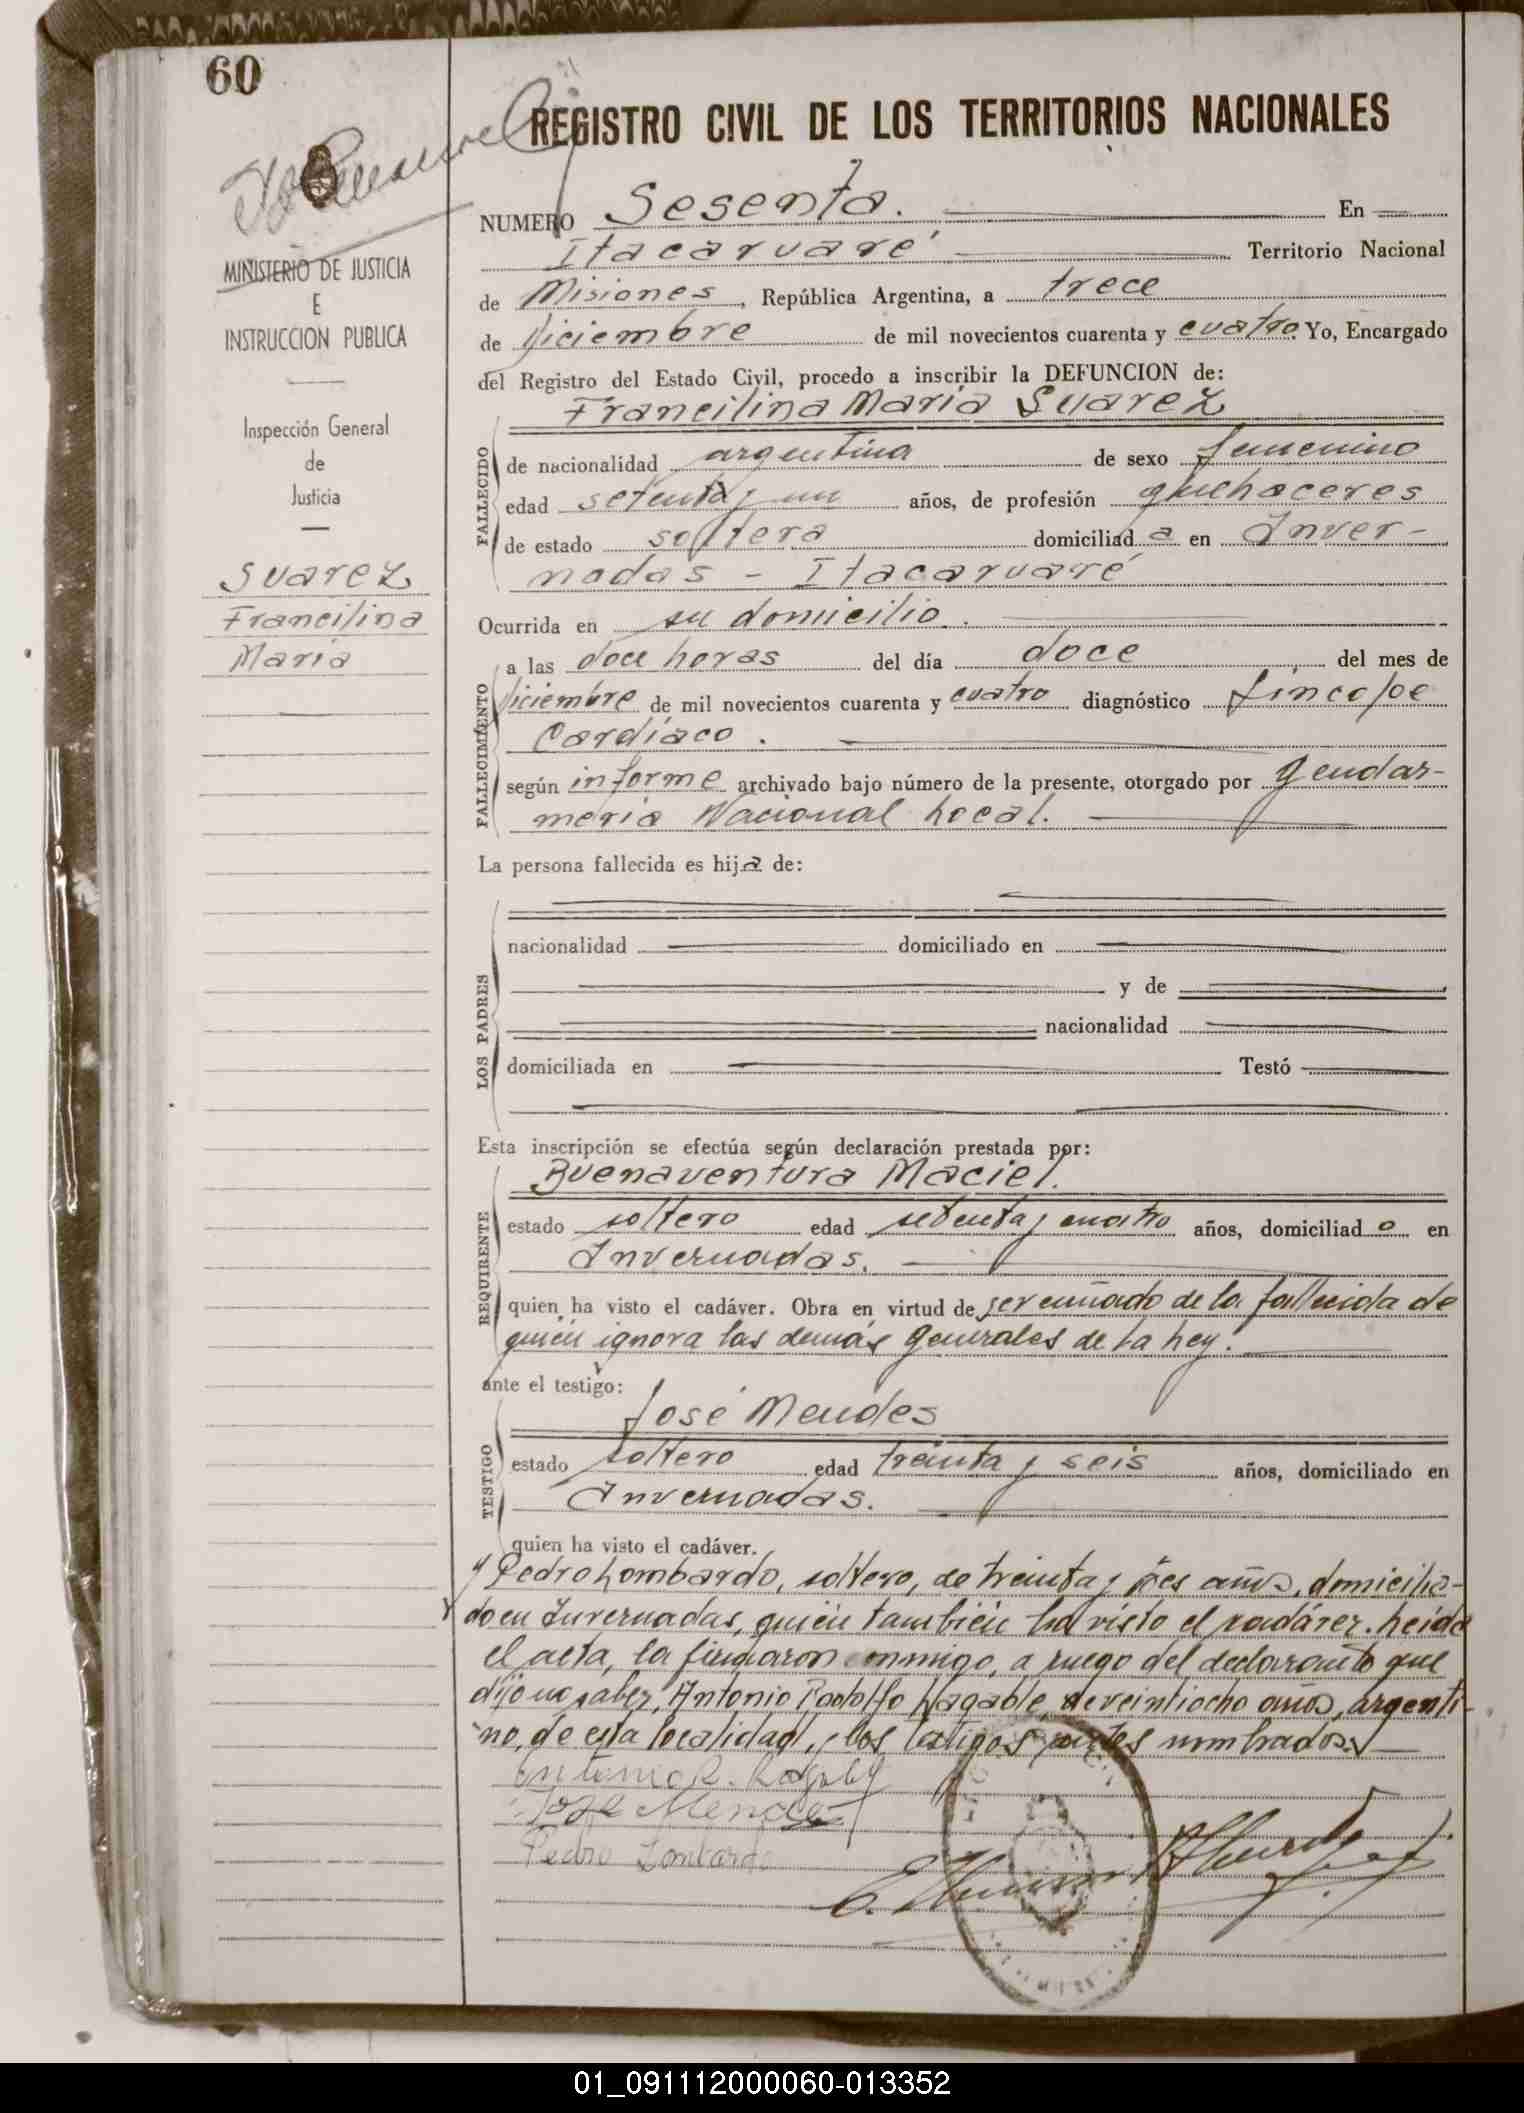 60
REGISTRO CIVIL DE LOS TERRITORIOS NACIONALES
NUMERO Sesenta. En
Itacaruaré Territorio Nacional
de Misiones, República Argentina, a trece
de Diciembre de mil novecientos cuarenta y cuatro. Yo, Encargado
del Registro del Estado Civil, procedo a inscribir la DEFUNCION de:
MINISTERIO DE JUSTICIA
E
INSTRUCCION PUBLICA
Inspección General
de
Justicia
Suarez
Francilina
Maria
FALLECIDO
Francilina Maria Suarez
de nacionalidad argentina de sexo femenino
edad setenta y un años, de profesión quehaceres
de estado soltera domiciliad a en Inver-
nadas - Itacaruaré
Ocurrida en su domicilio.
FALLECIMIENTO
a las doce horas del día doce del mes de
Diciembre de mil novecientos cuarenta y cuatro diagnóstico Síncope
Cardíaco.
según informe archivado bajo número de la presente, otorgado por Gendar-
meria Nacional Local.
La persona fallecida es hija de:
LOS PADRES
nacionalidad domiciliado en
y de
nacionalidad
domiciliada en Testó
Esta inscripción se efectúa según declaración prestada por:
REQUIRENTE
Buenaventura Maciel.
estado soltero edad setenta y cuatro años, domiciliad o en
Invernadas.
quien ha visto el cadáver. Obra en virtud de ser cuñado de la fallecida de
quien ignora las demás generales de la Ley.
ante el testigo:
TESTIGO
José Mendes
estado soltero edad treinta y seis años, domiciliado en
Invernadas.
quien ha visto el cadáver.
y Pedro Lombardo, soltero, de treinta y tres años, domicilia-
do en Invernadas, quién también ha visto el cadáver. Leida
el acta, la firmaron conmigo, a ruego del declarante que
dijo no saber, Antonio Rodolfo de veintiocho años, argenti-
no, de esta localidad, y los testigos antes nombrados.
Antonio R.
Jose Mendes
Pedro Lombardo
01_091112000060-013352